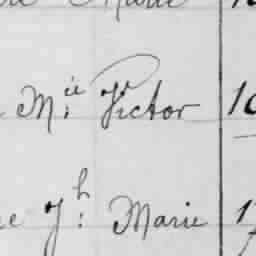 Marie
M.ie Victor 10
Jh: Marie 1